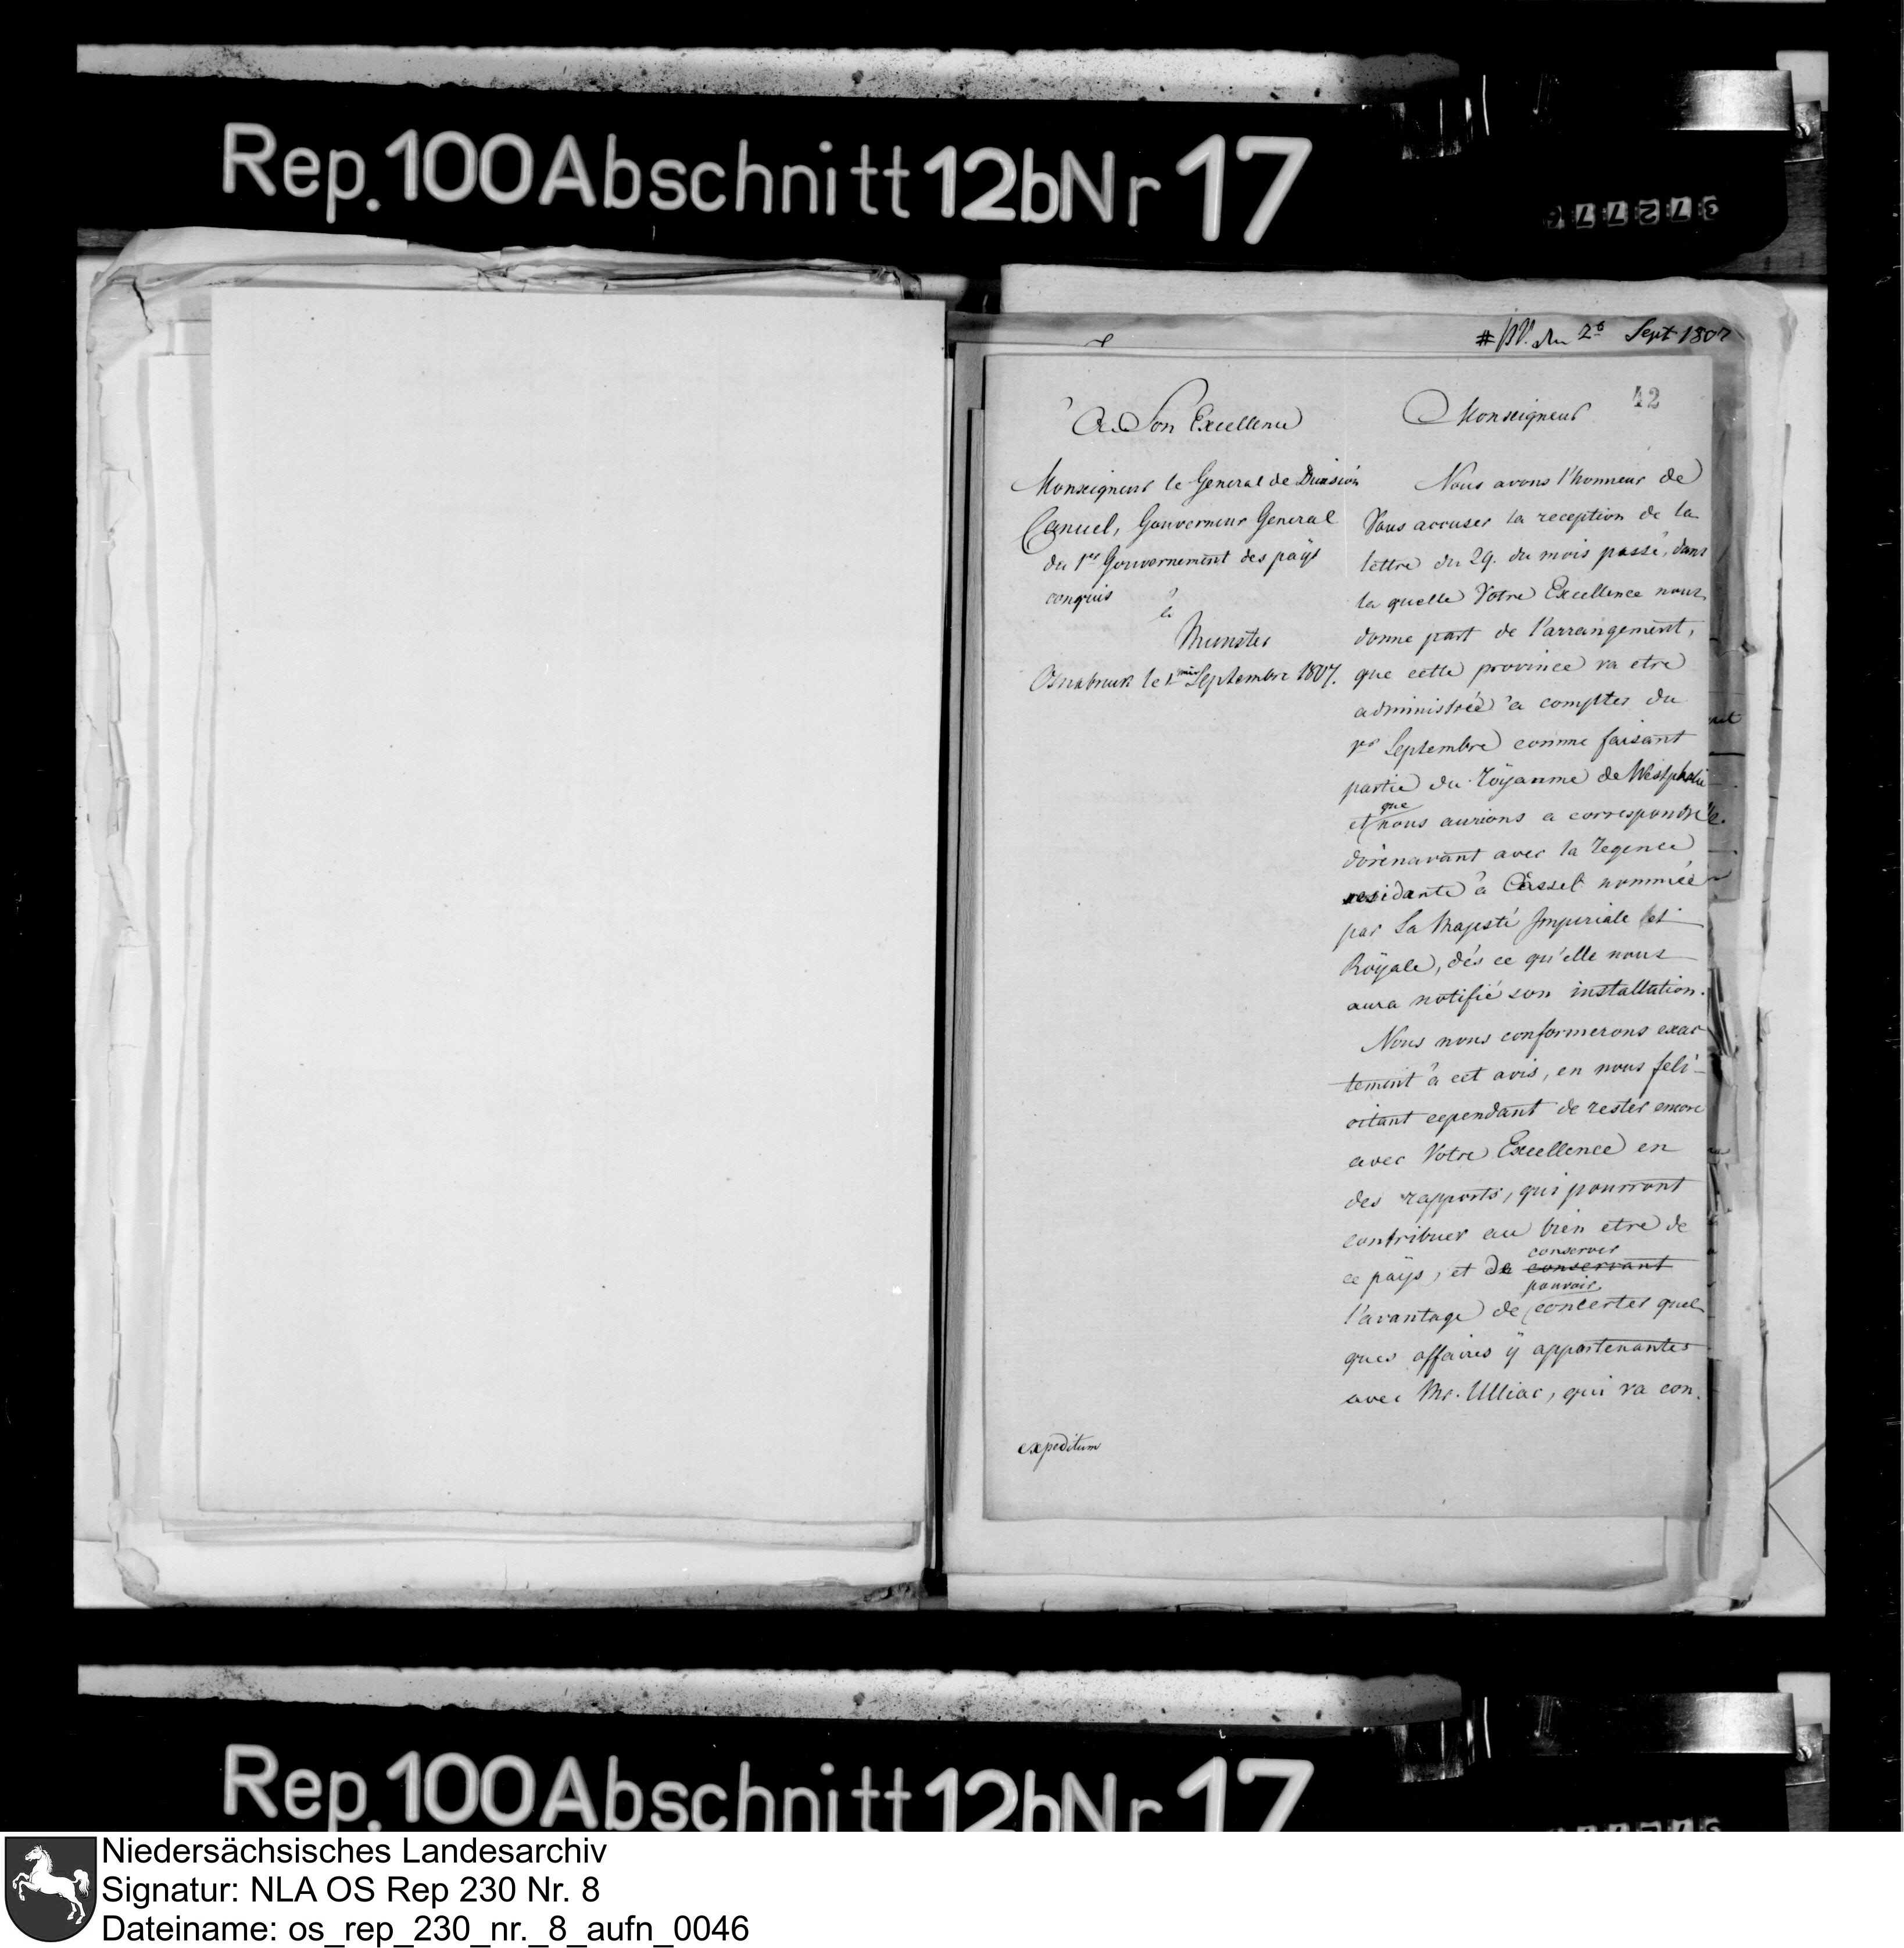 Rep. 100 Abschnitt 12b Nr 17
# PV. du 2.ᵗ Sept 1807
42
À Son Excellence
Monseigneur le General de Division
Canuel, Gouverneur General
du 1er Gouvernement des paÿs
conquis
à
Munster
Osnabruck le 1mier Septembre 1807.
Monseigneur
Nous avons l'honneur de
Vous accuser la reception de la
lettre du 29. du mois passé, dans
la quelle Votre Excellence nous
donne part de l'arrangement,
que cette province va etre
administrée à compter du
1er Septembre comme faisant
partie du Roÿaume de Westphalie
et que nous aurions a correspondre
dorénavant avec la Regence
residante à Cassel nommée
par Sa Majesté Imperiale et
Roÿale, dés ce qu'elle nous
aura notifié son installation.
Nous nous conformerons exac
tement à cet avis, en nous feli-
citant cependant de rester encore
avec Votre Excellence en
des rapports, qui pourront
contribuer au bien etre de
conserver
ce paÿs, et de conservant
pouvoir
l'avantage de concerter quel
ques affaires ÿ appartenantes
avec Mr. Ulliac, qui va con.
expeditum
Rep. 100 Abschnitt 12b Nr 17
Niedersächsisches Landesarchiv
Signatur: NLA OS Rep 230 Nr. 8
Dateiname: os_rep_230_nr._8_aufn_0046